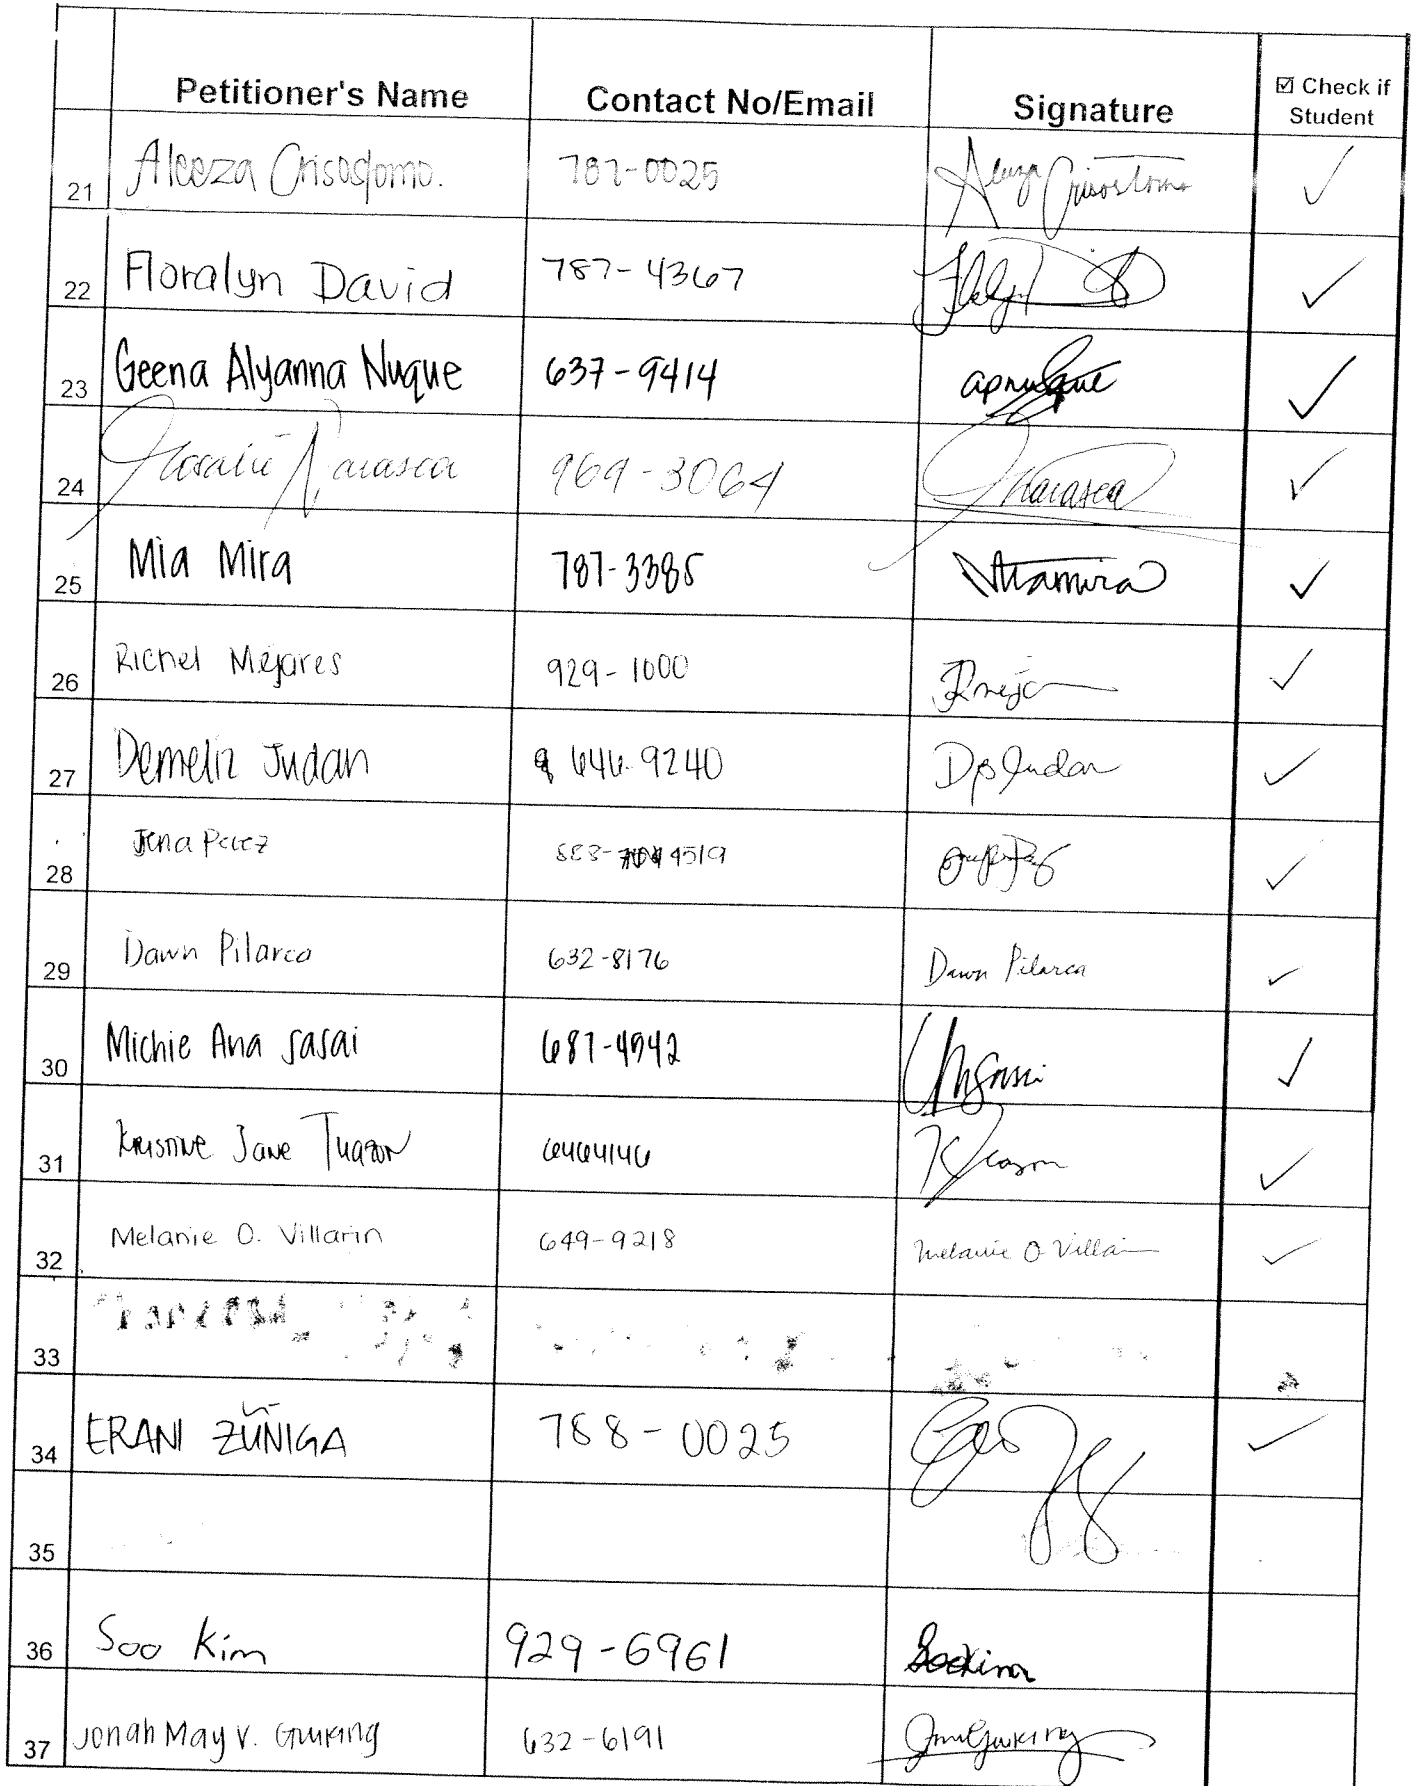 Petitioner's Name Contact No/Email Signature ☑ Check if Student
21 Aleeza Crisostomo. 787-0025 Aleeza Crisostomo ✓
22 Floralyn David 787-4367 ✓
23 Geena Alyanna Nuque 637-9414 ✓
24 Rosalie Narasca 969-3064 ✓
25 Mia Mira 787-3385 ✓
26 Richel Mejares 929-1000 ✓
27 Demeliz Judan 646-9240 ✓
28 Jena Perez 888-4519 ✓
29 Dawn Pilarca 632-8176 Dawn Pilarca ✓
30 Michie Ana Sasai 687-4942 ✓
31 Kristine Jane Tuazon 6464146 ✓
32 Melanie O. Villarin 649-9218 Melanie O Villarin ✓
33
34 ERANI ZUÑIGA 788-0025 ✓
35
36 Soo Kim 929-6961 Soo Kim
37 Jonah May V. Guiking 632-6191